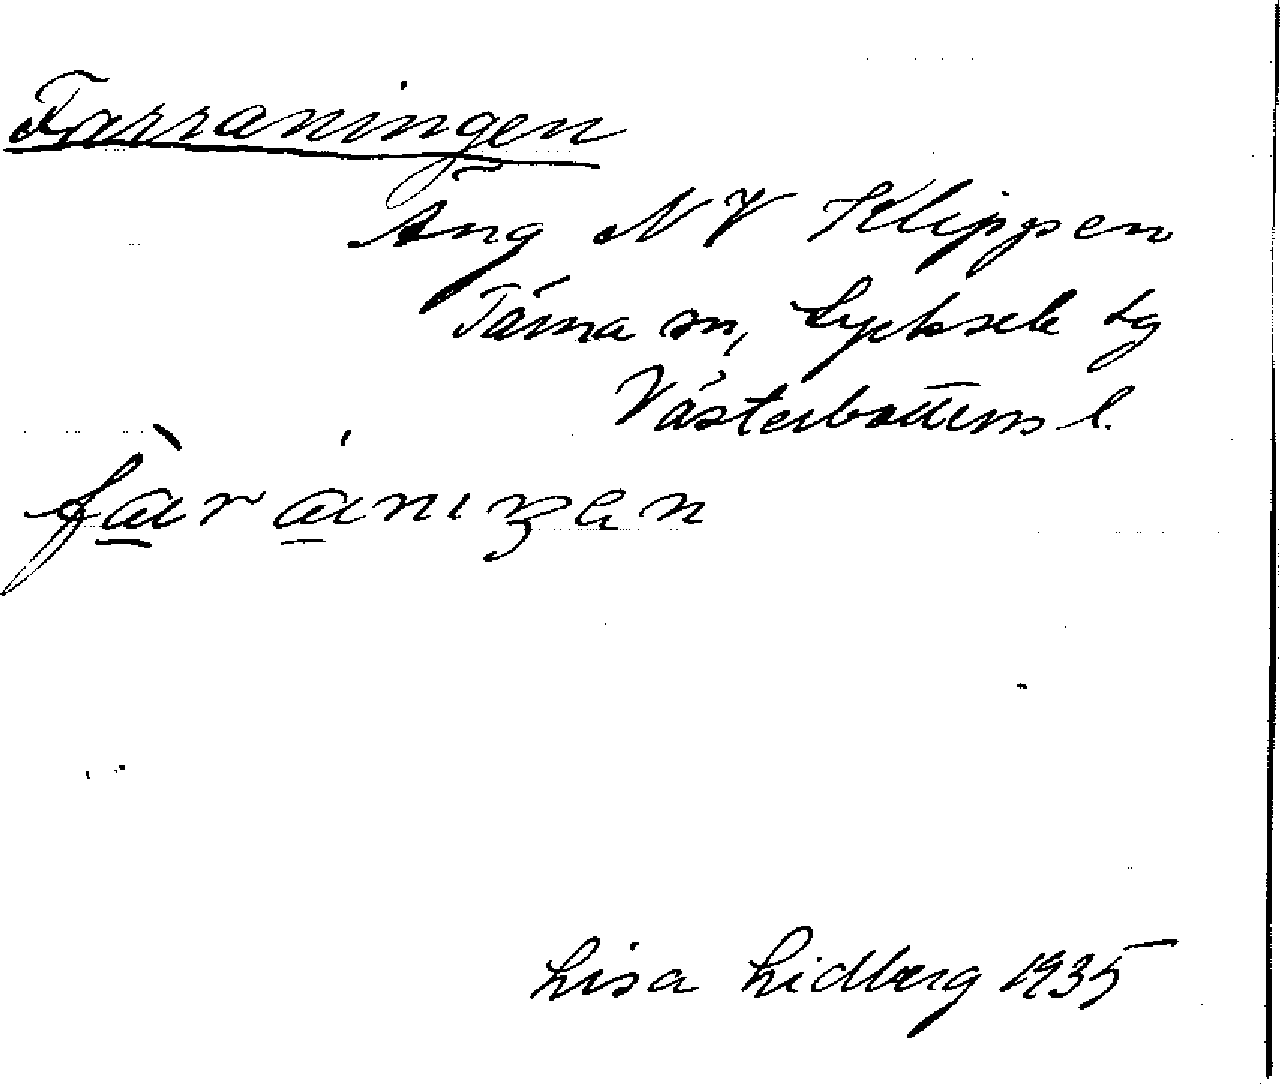 Farraningen
Äng NV Klippen
Tärna sn, Lycksele lg
Västerbottens l.
fàránigen
Lisa Lidberg 1935